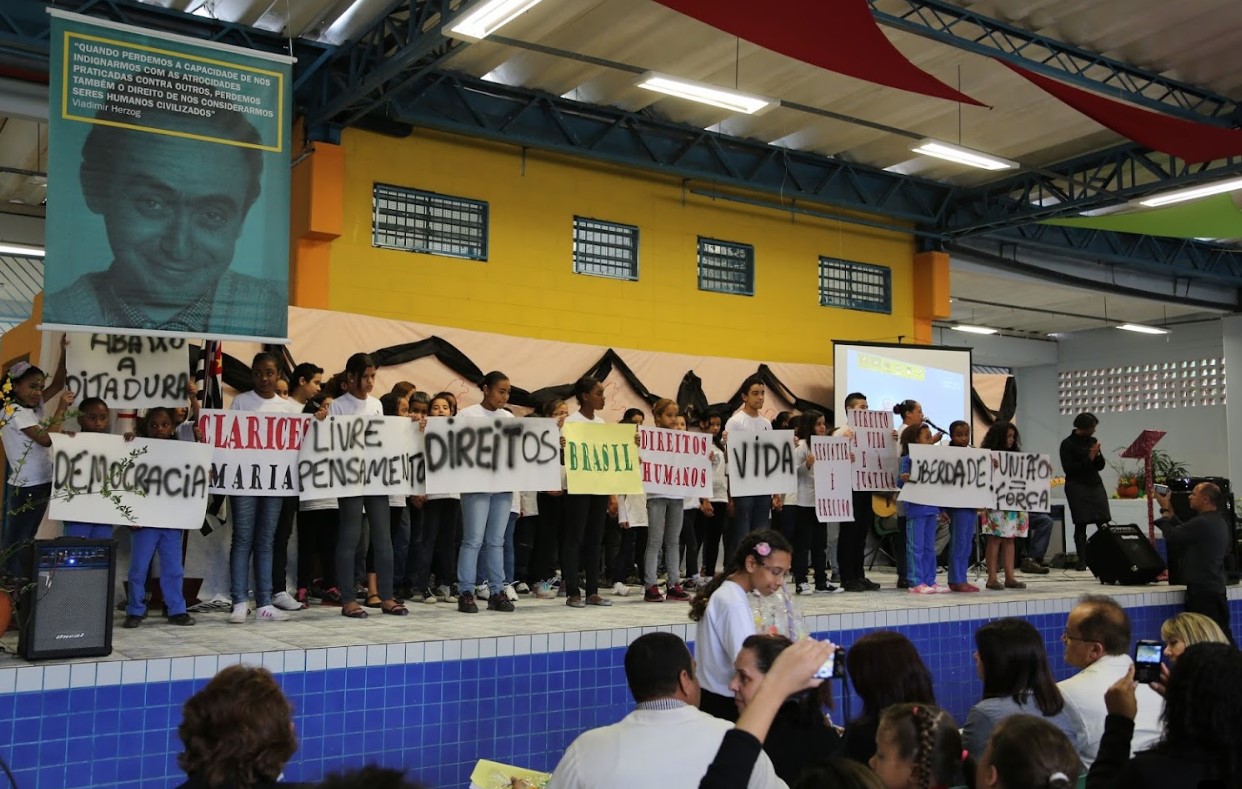 "QUANDO PERDEMOS A CAPACIDADE DE NOS
INDIGNARMOS COM AS ATROCIDADES
PRATICADAS CONTRA OUTROS, PERDEMOS
TAMBÉM O DIREITO DE NOS CONSIDERARMOS
SERES HUMANOS CIVILIZADOS"
Vladimir Herzog
ABAIXO
A
DITADURA
DEMOCRACIA
CLARICES
MARIA
LIVRE
PENSAMENTO
DIREITOS
BRASIL
DIREITOS
HUMANOS
VIDA
RESPEITO
É
PRECISO
DIREITO
A VIDA
E A
LIBERDADE!
UNIÃO
= FORÇA
Oneal